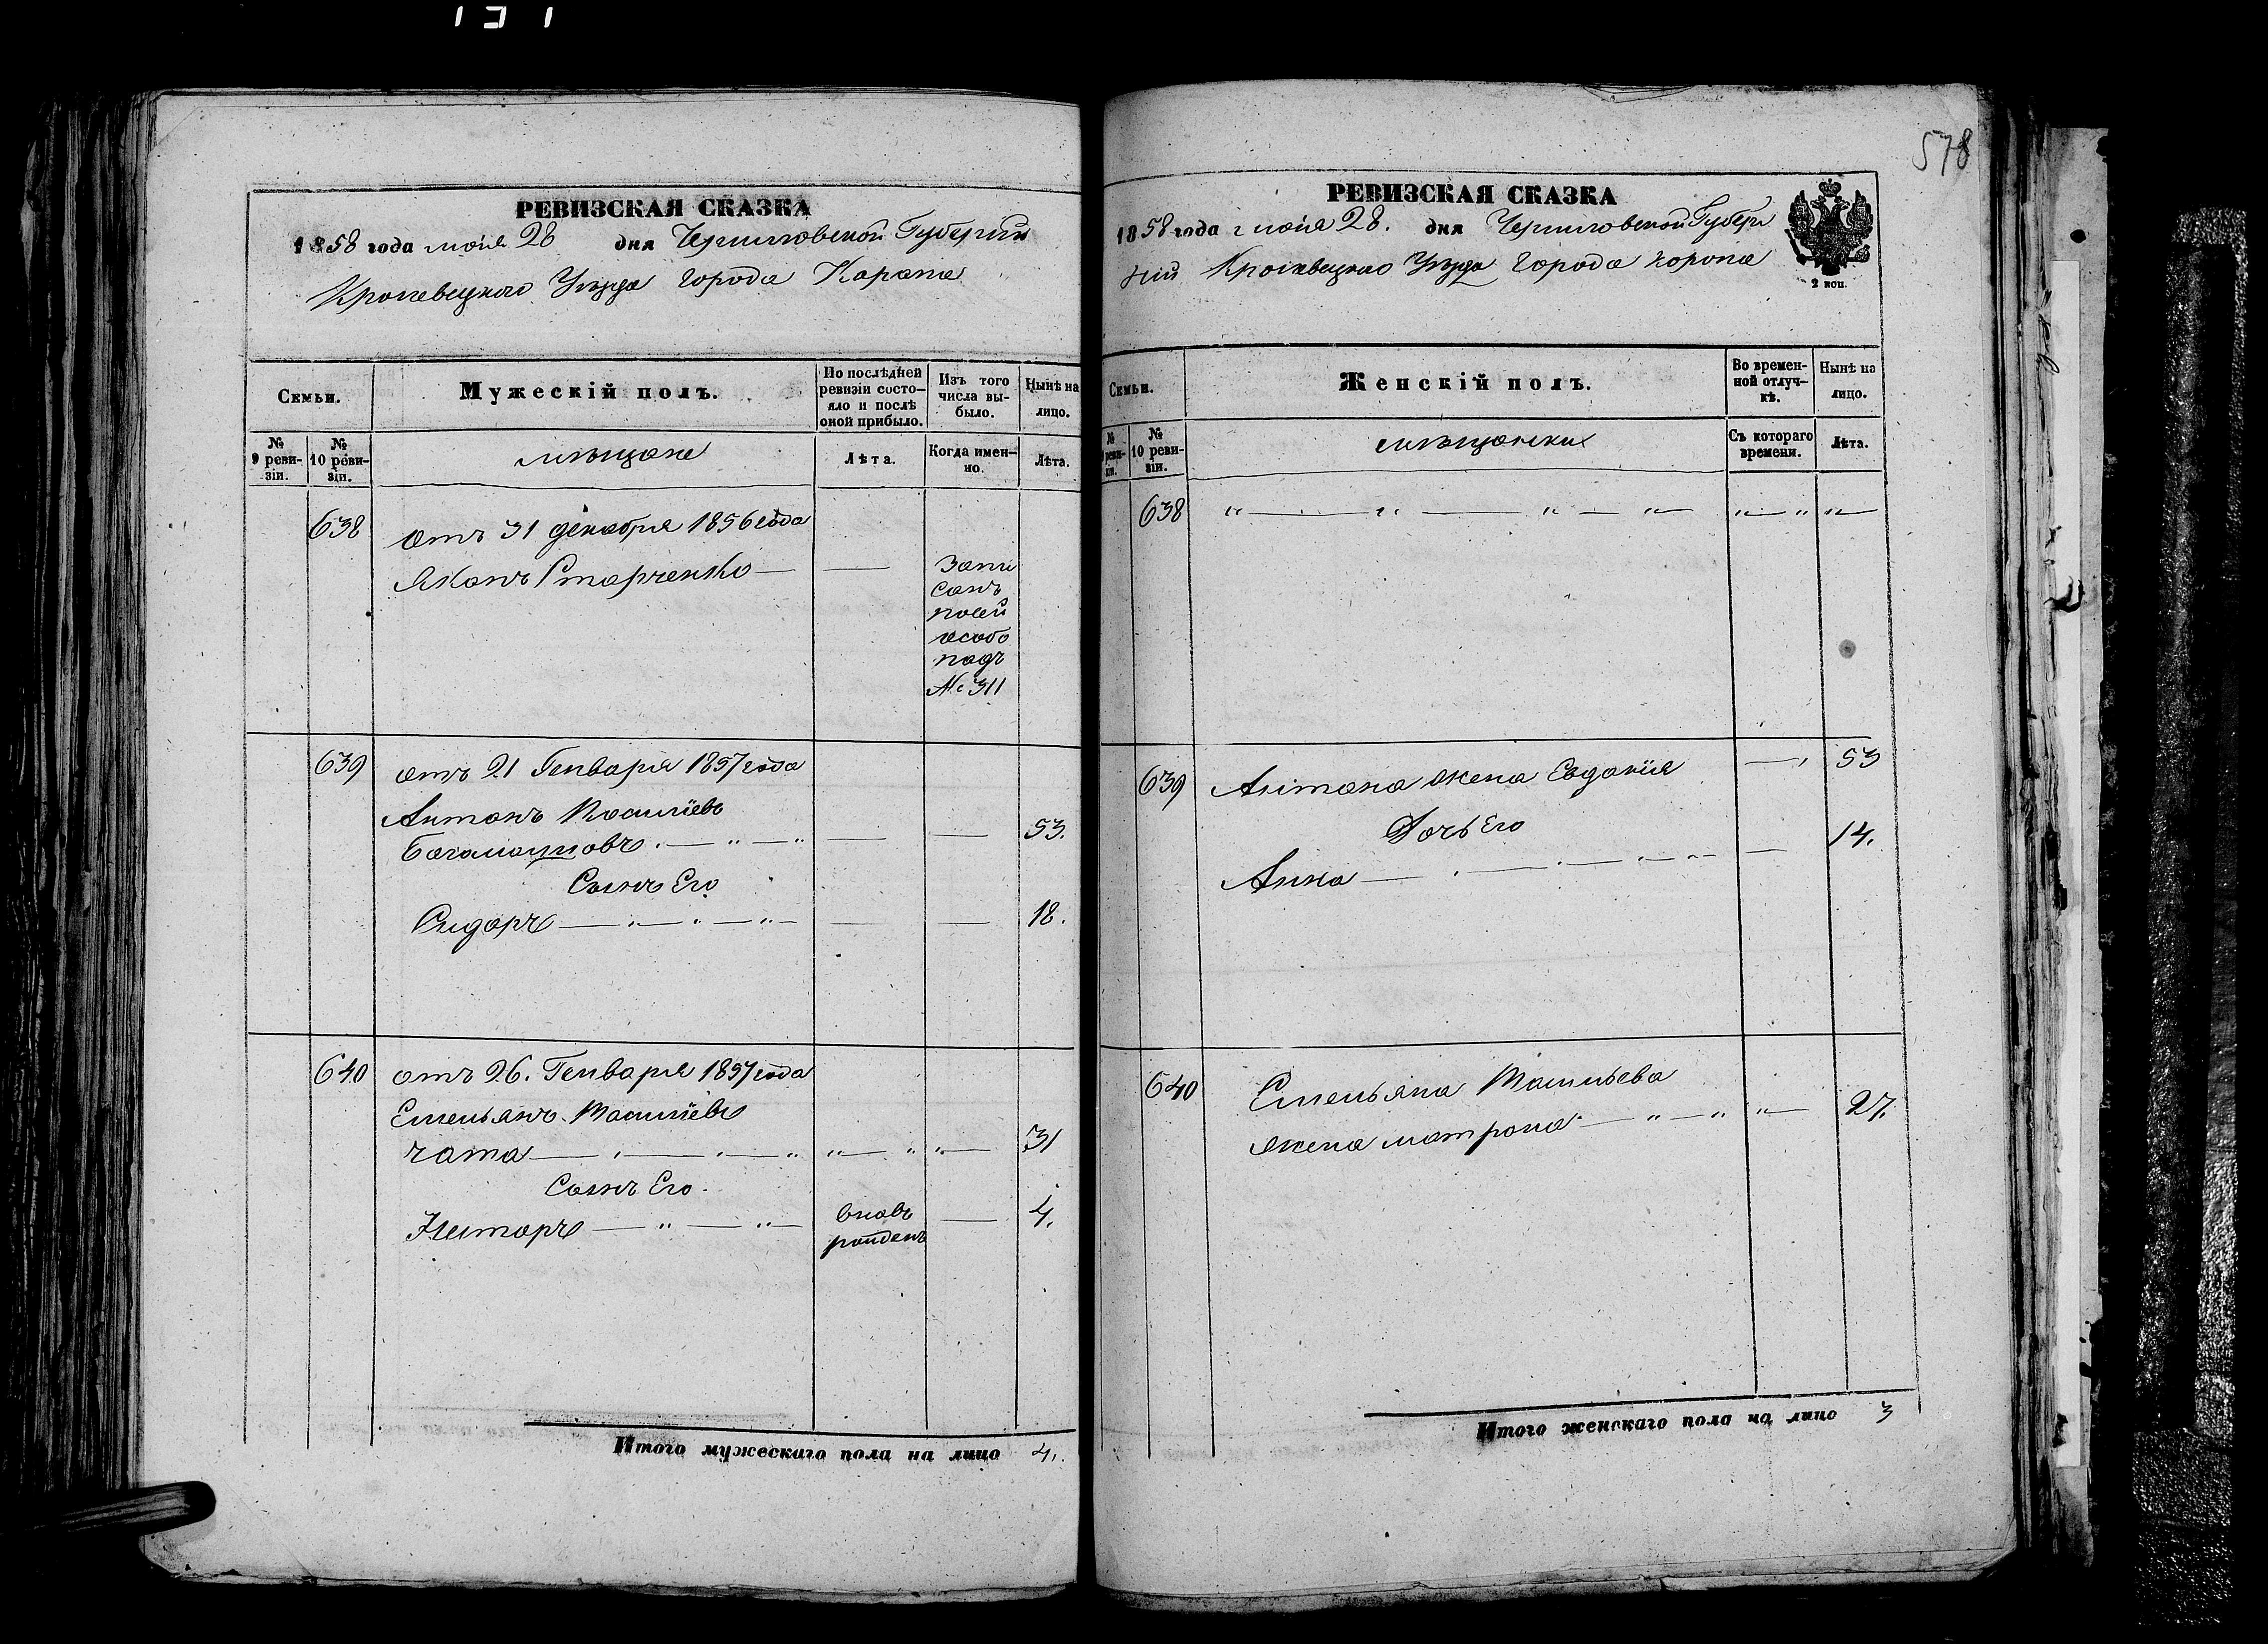 578
РЕВИЗСКАЯ СКАЗКА
1858 года маія 28 дня Черниговской Губерніи
Кролевецкого Уѣзда города Коропа
Семьи.
Мужескій полъ.
По послѣдней ревизіи состо-
яло и послѣ
оной прибыло.
Изъ того
числа вы-
было.
Нынѣ на
лицо.
№
9 реви-
зіи.
№
10 реви-
зіи.
мѣщане
Лѣта.
Когда имен-
но.
Лѣта.
638 отъ 31 декабря 1856 года
Яковъ Старченко — — Запи
санъ
по сей
особо
подъ
№ 311
639 отъ 21 Генваря 1857 года
Антонъ Василіевъ
— — 53.
Сынъ Его
Сидоръ — — — 18.
640 отъ 26. Генваря 1857 года
Емельянъ Василіевъ
31
Сынъ Его.
Несторъ — вновь
рожденъ — 4.
Итого мужескаго пола на лицо 4.
РЕВИЗСКАЯ СКАЗКА
1858 года маія 28. дня Черниговской Губер
ніи Кролевецкаго Уѣзда города Коропа
2 коп.
Семьи.
Женскій полъ.
Во времен-
ной отлуч-
кѣ.
Нынѣ на
лицо.
№
9 реви-
зіи.
№
10 реви-
зіи.
мѣщанки
Съ котораго
времени.
Лѣта.
638 „ — „ — „ — „ — „ — „ „ —
639 Антона жена Евдокія — 53
Дочь Его
Анна — — 14.
640 Емельяна Васильева
жена матрона — „ — „ „ — 27.
Итого женскаго пола на лицо 3